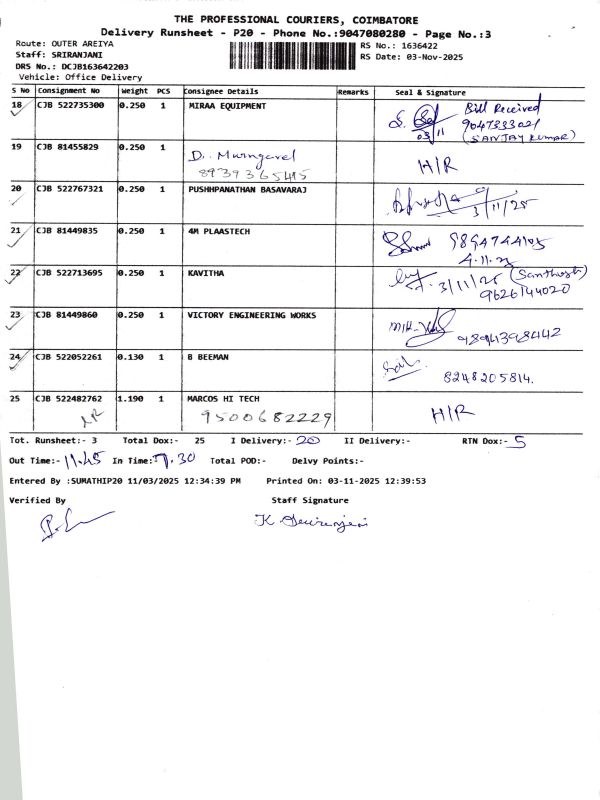 THE PROFESSIONAL COURIERS, COIMBATORE
Delivery Runsheet - P20 - Phone No.:9047080280 - Page No.:3
Route: OUTER AREIYA
RS No.: 1636422
Staff: SRIRANJANI
RS Date: 03-Nov-2025
DRS No.: DCJB163642203
Vehicle: Office Delivery
S No Consignment No Weight PCS Consignee Details Remarks Seal & Signature
18 CJB 522735300 0.250 1 MIRAA EQUIPMENT
Bill Received
9047333021
(SANJAY KUMAR)
03/11
19 CJB 81455829 0.250 1 D. Murugavel H/R
8939365415
20 CJB 522767321 0.250 1 PUSHHPANATHAN BASAVARAJ
3/11/25
21 CJB 81449835 0.250 1 4M PLAASTECH
9894744105
4.11.25
22 CJB 522713695 0.250 1 KAVITHA
3/11/25 (Santhosh)
9626144020
23 CJB 81449860 0.250 1 VICTORY ENGINEERING WORKS
9894398442
24 CJB 522052261 0.130 1 B BEEMAN
8248205814.
25 CJB 522482762 1.190 1 MARCOS HI TECH
NR 9500682229 H/R
Tot. Runsheet:- 3 Total Dox:- 25 I Delivery:- 20 II Delivery:- RTN Dox:- 5
Out Time:- 11.45 In Time:- 7.30 Total POD:- Delvy Points:-
Entered By :SUMATHIP20 11/03/2025 12:34:39 PM Printed On: 03-11-2025 12:39:53
Verified By Staff Signature